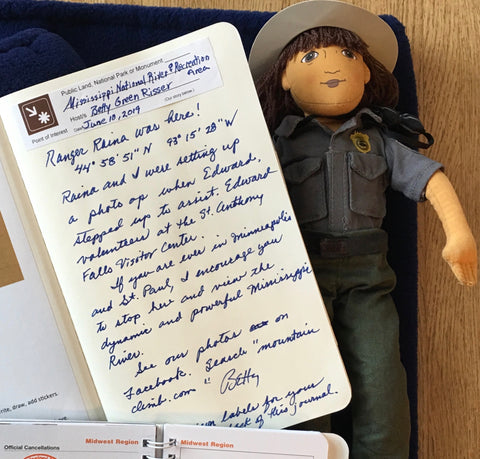 Public Land, National Park or Monument
Mississippi National River & Recreation
Area
Host/s Betty Green Risser
Date June 10, 2019 (Our story below.)
Point of Interest
Ranger Raina was here!
44° 58' 51" N 93° 15' 28" W
Raina and I were setting up
a photo op when Edward,
stepped up to assist. Edward
volunteers at the St. Anthony
Falls Visitor Center.
If you are ever in Minneapolis
and St. Paul, I encourage you
to stop here and view the
dynamic and powerful Mississippi
River.
See our photos on
Facebook. Search "mountain
climb.com"
Betty
labels for your
of this journal.
write, draw, add stickers.
Official Cancellations Midwest Region
Midwest Region